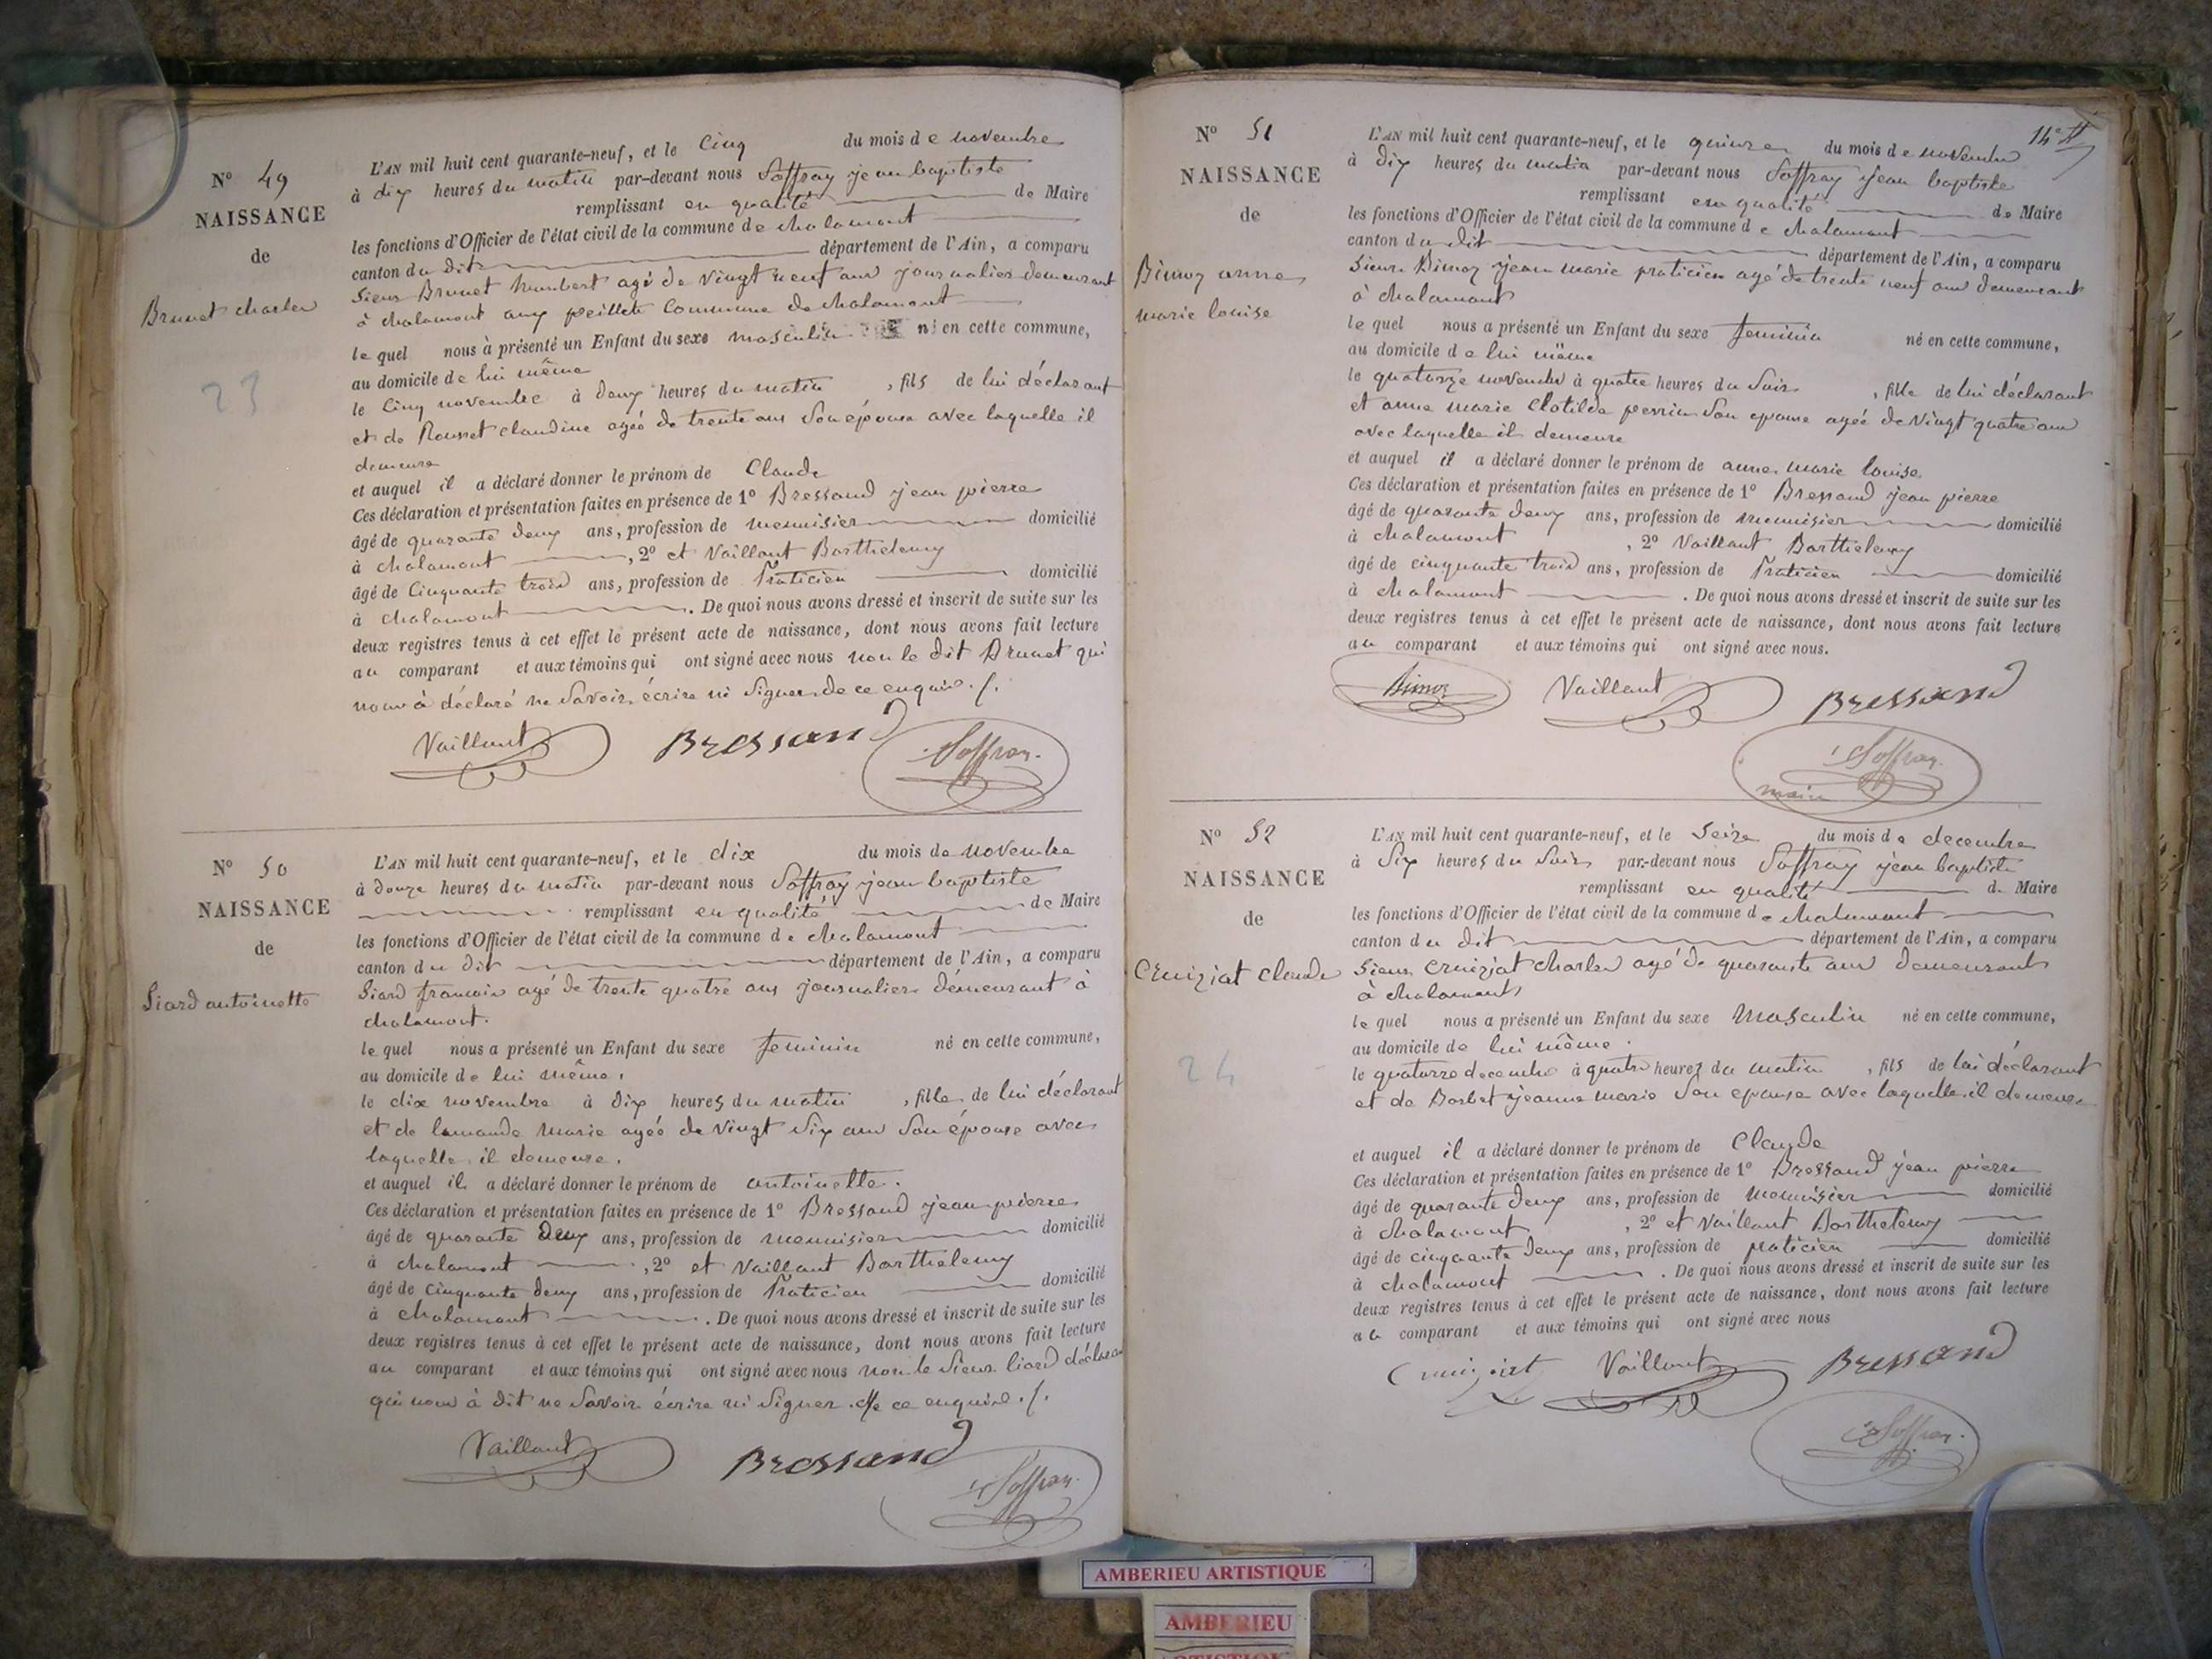 N° 49
NAISSANCE
de
Brunet charles
23
L'AN mil huit cent quarante-neuf, et le cinq du mois de novembre
à dix heures du matin par-devant nous Soffray jean baptiste
remplissant en qualité de Maire
les fonctions d'Officier de l'état civil de la commune de chalamont
canton du dit département de l'Ain, a comparu
Sieur Brunet humbert agé de vingt neuf ans journalier demeurant
à chalamont aux peillets Commune de chalamont
le quel nous à présenté un Enfant du sexe masculin né en cette commune,
au domicile de lui même
le cinq novembre à deux heures du matin , fils de lui déclarant
et de Rousset claudine agée de trente ans son épouse avec laquelle il
demeure
et auquel il a déclaré donner le prénom de Claude
Ces déclaration et présentation faites en présence de 1° Bressand jean pierre
âgé de quarante deux ans, profession de menuisier domicilié
à chalamont , 2° et Vaillant Barthelemy
âgé de Cinquante trois ans, profession de Praticien domicilié
à chalamont . De quoi nous avons dressé et inscrit de suite sur les
deux registres tenus à cet effet le présent acte de naissance, dont nous avons fait lecture
au comparant et aux témoins qui ont signé avec nous non le dit Brunet qui
nous à déclaré ne savoir écrire ni signer de ce enquis ./.
Vaillant Bressand Soffray
N° 50
NAISSANCE
de
Liard antoinette
L'AN mil huit cent quarante-neuf, et le dix du mois de novembre
à douze heures du matin par-devant nous Soffray jean baptiste
remplissant en qualité de Maire
les fonctions d'Officier de l'état civil de la commune de chalamont
canton du dit département de l'Ain, a comparu
Liard francois agé de trente quatre ans journalier démeurant à
chalamont.
le quel nous a présenté un Enfant du sexe feminin né en cette commune,
au domicile de lui même,
le dix novembre à dix heures du matin , fille de lui déclarant
et de lamande marie agée de vingt six ans son épouse avec
laquelle il demeure.
et auquel il a déclaré donner le prénom de antoinette.
Ces déclaration et présentation faites en présence de 1° Bressand jean pierre
âgé de quarante deux ans, profession de menuisier domicilié
à chalamont , 2° et Vaillant Barthelemy
âgé de cinquante deux ans, profession de Praticien domicilié
à chalamont . De quoi nous avons dressé et inscrit de suite sur les
deux registres tenus à cet effet le présent acte de naissance, dont nous avons fait lecture
au comparant et aux témoins qui ont signé avec nous non le sieur liard
qui nous à dit ne savoir écrire ni signer de ce enquis ./.
Vaillant Bressand Soffray
14e
N° 51
NAISSANCE
de
Bimoz anne
marie louise
L'AN mil huit cent quarante-neuf, et le quinze du mois de novembre
à dix heures du matin par-devant nous Soffray jean baptiste
remplissant en qualité de Maire
les fonctions d'Officier de l'état civil de la commune de chalamont
canton du dit département de l'Ain, a comparu
Sieur Bimoz jean marie praticien agé de trente neuf ans demeurant
à chalamont
le quel nous a présenté un Enfant du sexe feminin né en cette commune,
au domicile de lui même
le quatorze novembre à quatre heures du soir , fille de lui déclarant
et anne marie Clotilde perrin son epouse agée de vingt quatre ans
avec laquelle il demeure
et auquel il a déclaré donner le prénom de anne marie louise
Ces déclaration et présentation faites en présence de 1° Bressand jean pierre
âgé de quarante deux ans, profession de menuisier domicilié
à chalamont , 2° Vaillant Barthelemy
âgé de cinquante trois ans, profession de Praticien domicilié
à chalamont . De quoi nous avons dressé et inscrit de suite sur les
deux registres tenus à cet effet le présent acte de naissance, dont nous avons fait lecture
au comparant et aux témoins qui ont signé avec nous.
Bimoz Vaillant Bressand
Soffray
maire
N° 52
NAISSANCE
de
Cruiziat Claude
24
L'AN mil huit cent quarante-neuf, et le seize du mois de decembre
à six heures du soir par-devant nous Soffray jean baptiste
remplissant en qualité de Maire
les fonctions d'Officier de l'état civil de la commune de chalamont
canton du dit département de l'Ain, a comparu
Sieur cruiziat charles agé de quarante ans demeurant
à chalamont
le quel nous a présenté un Enfant du sexe masculin né en cette commune,
au domicile de lui même.
le quatorze decembre à quatre heures du matin , fils de lui déclarant
et de Barbet jeanne marie son epouse avec laquelle il demeure
et auquel il a déclaré donner le prénom de Claude
Ces déclaration et présentation faites en présence de 1° Bressand jean pierre
âgé de quarante deux ans, profession de menuisier domicilié
à chalamont , 2° et Vaillant Barthelemy
âgé de cinquante deux ans, profession de praticien domicilié
à chalamont . De quoi nous avons dressé et inscrit de suite sur les
deux registres tenus à cet effet le présent acte de naissance, dont nous avons fait lecture
au comparant et aux témoins qui ont signé avec nous
Cruiziat Vaillant Bressand
Soffray
AMBERIEU ARTISTIQUE
AMBERIEU
ARTISTIQUE